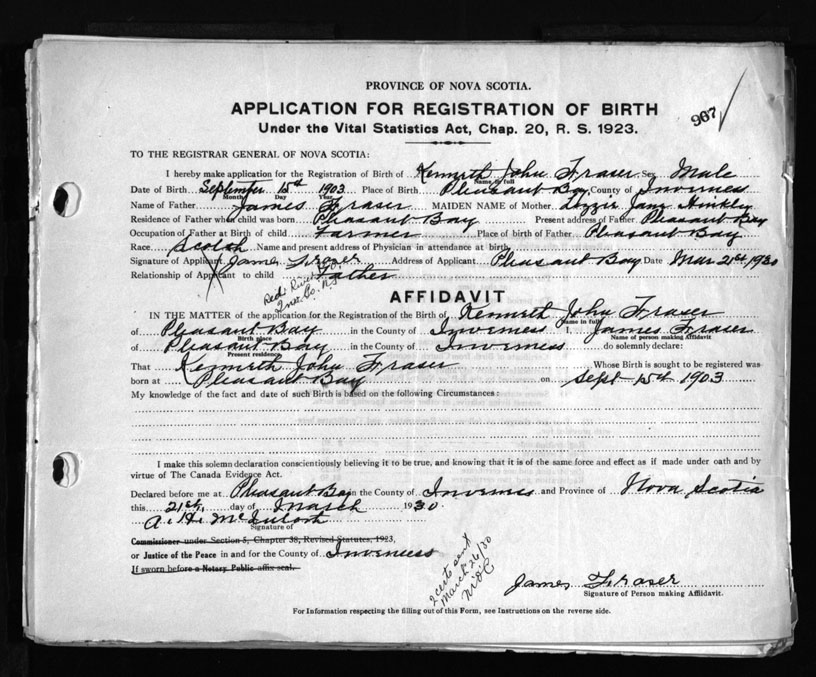 PROVINCE OF NOVA SCOTIA.
APPLICATION FOR REGISTRATION OF BIRTH
Under the Vital Statistics Act, Chap. 20, R. S. 1923.
967
TO THE REGISTRAR GENERAL OF NOVA SCOTIA:
I hereby make application for the Registration of Birth of Kennith John Fraser Sex Male
Name in full
Date of Birth September 15th 1903 Place of Birth Pleasant Bay County of Inverness
Month Day Year
Name of Father James Fraser MAIDEN NAME of Mother Lizzie Jane Hinkley
Residence of Father when child was born Pleasant Bay Present address of Father Pleasant Bay
Occupation of Father at Birth of child Farmer Place of birth of Father Pleasant Bay
Race Scotch Name and present address of Physician in attendance at birth
Signature of Applicant James Frazer Address of Applicant Pleasant Bay Date Mar 21st 1930
Relationship of Applicant to child Father
Red River P.O.
Inv. Co. N.S.
AFFIDAVIT
IN THE MATTER of the application for the Registration of the Birth of Kennith John Fraser
Name in full
of Pleasant Bay in the County of Inverness I, James Fraser
Birth place Name of person making Affidavit
of Pleasant Bay in the County of Inverness do solemnly declare:
Present residence
That Kennith John Fraser Whose Birth is sought to be registered was
born at Pleasant Bay on Sept 15th 1903
My knowledge of the fact and date of such Birth is based on the following Circumstances:
I make this solemn declaration conscientiously believing it to be true, and knowing that it is of the same force and effect as if made under oath and by
virtue of The Canada Evidence Act.
Declared before me at Pleasant Bay in the County of Inverness and Province of Nova Scotia
this 21st day of March 1930
A. H. McIntosh
Signature of
Commissioner under Section 5, Chapter 38, Revised Statutes, 1923,
or Justice of the Peace in and for the County of Inverness
If sworn before a Notary Public affix seal.
2 certs sent
March 26/30
James Fraser
Signature of Person making Affidavit.
For Information respecting the filling out of this Form, see Instructions on the reverse side.